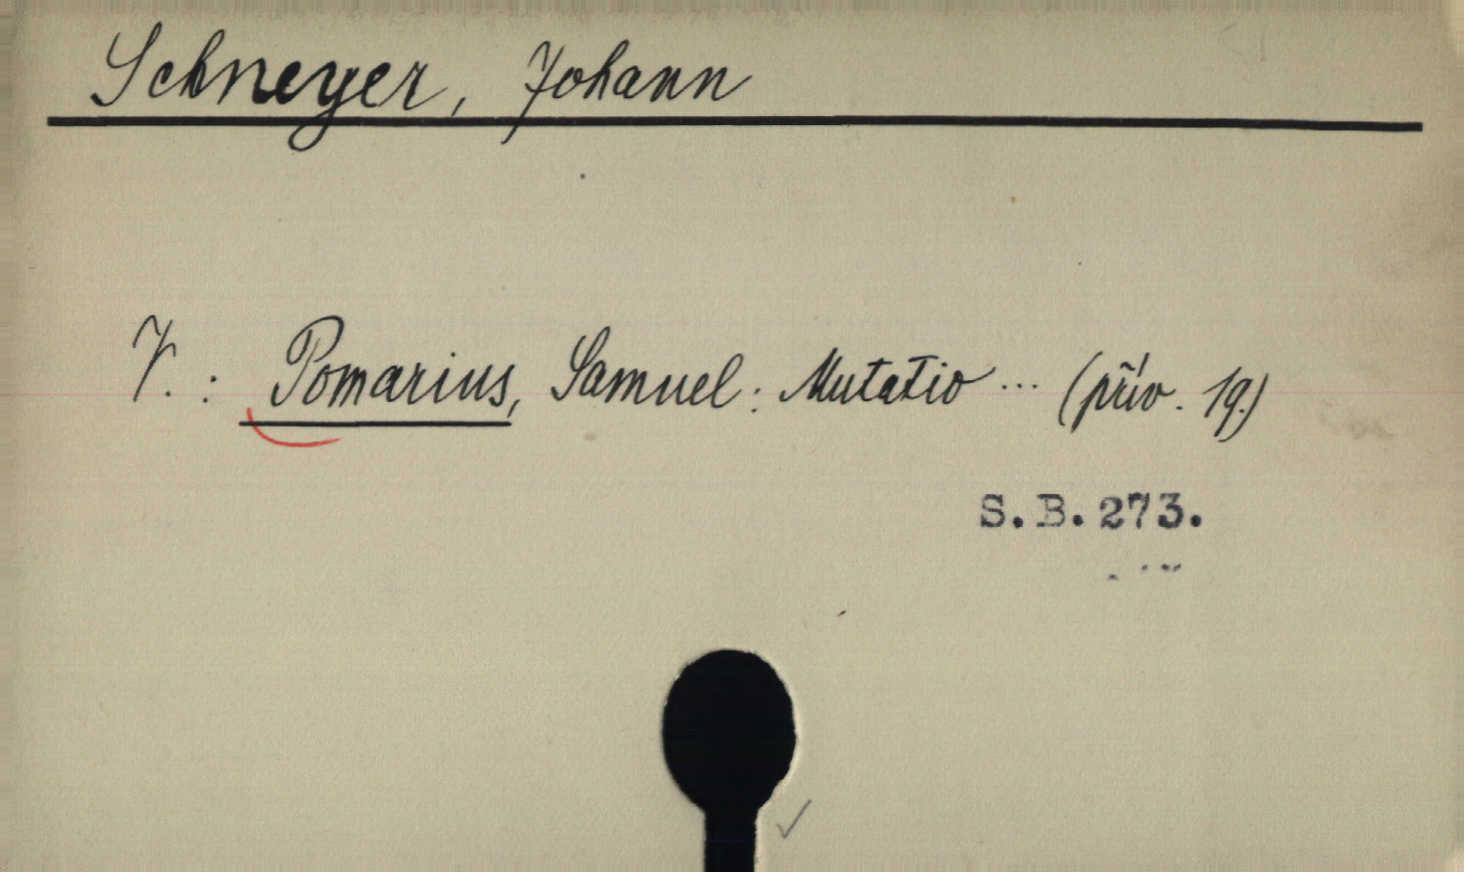 Schneyer, Johann
V. : Pomarius, Samuel: Mutatio ... (přív. 19.)
S.B.273.